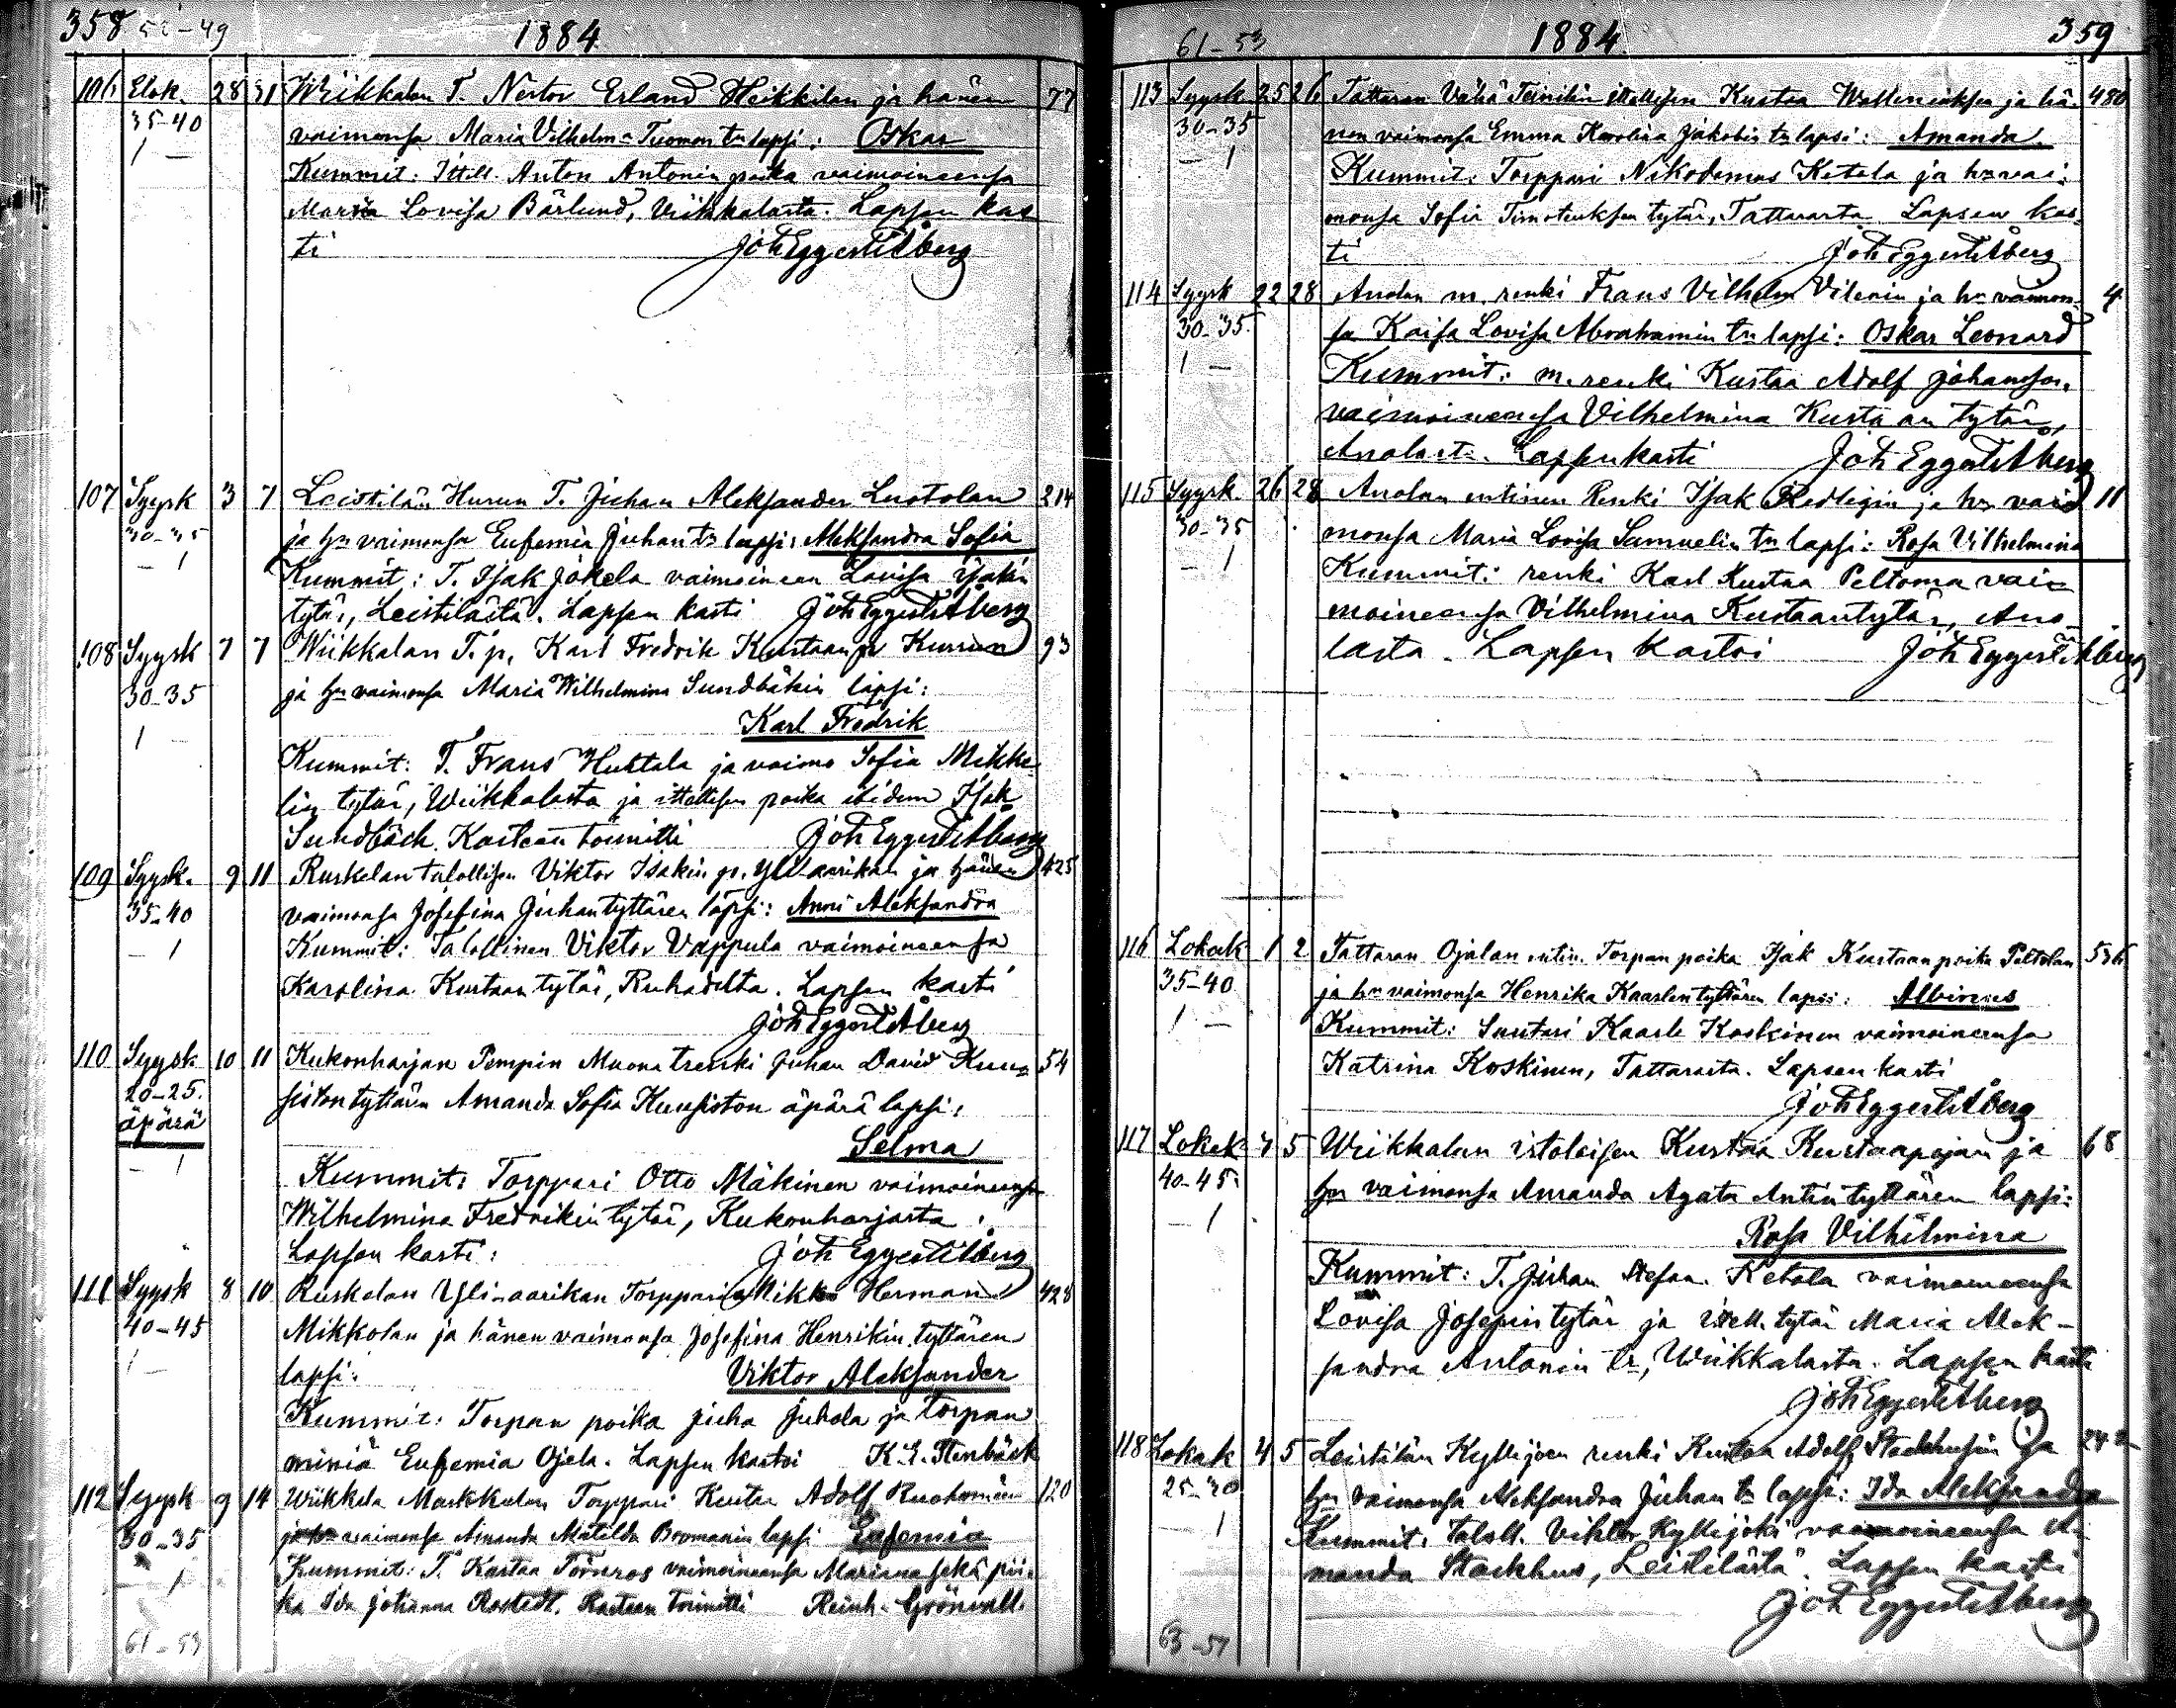 358 1884
106 Elok. 28 31 Wiikkalan T. Nestor Erland Heikkilan ja hänen 77
35-40 vaimonsa Maria Vilhelm-a Tuomon tr lapsi: Oskar
1 — Kummit: Itell. Anton Antonin poika vaimoineensa
Maria Lovisa Bärlund, Viikkalasta. Lapsen kas
ti Joh Eggert Åberg
107 Syysk 3 7 Leistilän Hurun T. Juhan Aleksander Luotolan 214
30-35 ja hn vaimonsa Eufemia Juhan tr lapsi: Aleksandra Sofia
— 1 Kummit: T. Isak Jokela vaimoineen Lovisa Isakin
tytär, Leistilästä. Lapsen kasti Joh Eggert Åberg
108 Syysk 7 7 Wiikkalan T. p. Karl Fredrik Kustaan p 93
30-35 ja hn vaimonsa Maria Wilhelmina Sundbäkin lapsi:
1 — Karl Fredrik
Kummit: T. Frans Huhtala ja vaimo Sofia Mikke
lin tytär, Wiikkalasta ja itellisen poika ibidem Isak
Sundbäck. Kasteen toimitti Joh Eggert Åberg
109 Syysk. 9 11 Ruskelan talollisen Viktor Isakin p. Yli-aarikan ja hänen 425
35-40 vaimonsa Josefina Juhantyttären lapsi: Anni Aleksandra
— 1 Kummit: Talollinen Viktor Vappula vaimoineensa
Karolina Kustaan tytär, Ruhadelta. Lapsen kasti
Joh Eggert Åberg
110 Syysk 10 11 Kukonharjan Pempin Muonatrenki Juhan David Kuu= 54
20-25. siston tyttären Amanda Sofia Kuusiston äpärä lapsi:
äpärä Selma
— 1 Kummit: Torppari Otto Mäkinen vaimoineensa
Wilhelmina Fredrikin tytär, Kukonharjasta.
Lapsen kasti: Joh Eggert Åberg
111 Syysk 8 10 Ruskelan Yli-aarikan Torppari Mikko Herman 428
40-45 Mikkolan ja hänen vaimonsa Josefina Henrikin tyttären
1 — lapsi: Viktor Aleksander
Kummit: Torpan poika Juha Juhola ja torpan
miniä Eufemia Ojela. Lapsen kastoi K. E. Stenbäck
112 Syysk 9 14 Wiikkala Markkulan Torppari Kustaa Adolf Ruohomäen 120
30-35 ja hn vaimonsa Amanda Matilda Bromanin lapsi Eufemia
— 1 Kummit: T. Kustaa Törnros vaimoineensa Mariana sekä pii-
ka Ida Johanna Rostedt. Kasteen toimitti Reinh. Grönvall.
61-53
61-53 1884 359
113 Syysk 25 26 Tattaran Vähä Teinilin itellisen Kustaa ja hä- 480
30-35 nen vaimonsa Emma Karolina Jakobin tr lapsi: Amanda.
— 1 Kummit: Torppari Nikodemus Ketola ja hn vai-
monsa Sofia Timoteuksen tytär, Tattarasta Lapsen kas-
ti Joh Eggert Åberg
114 Syysk 22 28 Anolan m. renki Frans Vilhelm Vilenin ja hn vaimon- 4
30-35. sa Kaisa Lovisa Abrahamin tr lapsi: Oskar Leonard
1 — Kummit: m. renki Kustaa Adolf Johansson,
vaimoineensa Vilhelmina Kustaan tytär,
Anolasta. Lapsen kasti Joh Eggert Åberg
115 Syysk. 26 28 Anolan entinen Renki Isak Redligin ja hn vai 11
30-35 monsa Maria Lovisa Samuelin tr lapsi: Rosa Vilhelmina
— 1 Kummit: renki Karl Kustaa Peltoma vai=
moineensa Vilhelmina Kustaantytär, Ano-
lasta. Lapsen kastoi Joh Eggert Åberg
116 Lokak 1 2 Tattaran Ojalan entin. Torpan poika Isak Kustaan poika Peltolan 536
35-40 ja hn vaimonsa Henrika Kaarlen tyttären lapsi: Albinus
1 — Kummit: Suutari Kaarle Koskinen vaimoineensa
Katrina Koskinen, Tattarasta. Lapsen kasti
Joh Eggert Åberg
117 Lokak 4 5 Wiikkalan itsellisen Kustaa Kustaapojan ja 68
40-45 hn vaimonsa Amanda Agata Antintyttären lapsi:
— 1 Rosa Vilhelmina
Kummit: T. Juhan Stefan Ketola vaimoineensa
Lovisa Josepintytär ja itell. tytär Maria Alek-
sandra Antonin tr, Wiikkalasta. Lapsen kasti
Joh Eggert Åberg
118 Lokak 4 5 Leistilän Kyllijoen renki Kustaa Adolf Stackhusin ja 242
25-30 hn vaimonsa Aleksandra Juhan tr lapsi: Ida Aleksandra
— 1 Kummit: Taloll. Viktor Kyllijoki vaimoineensa A-
manda Stackhus, Leistilästä. Lapsen kasti
Joh Eggert Åberg
63-51